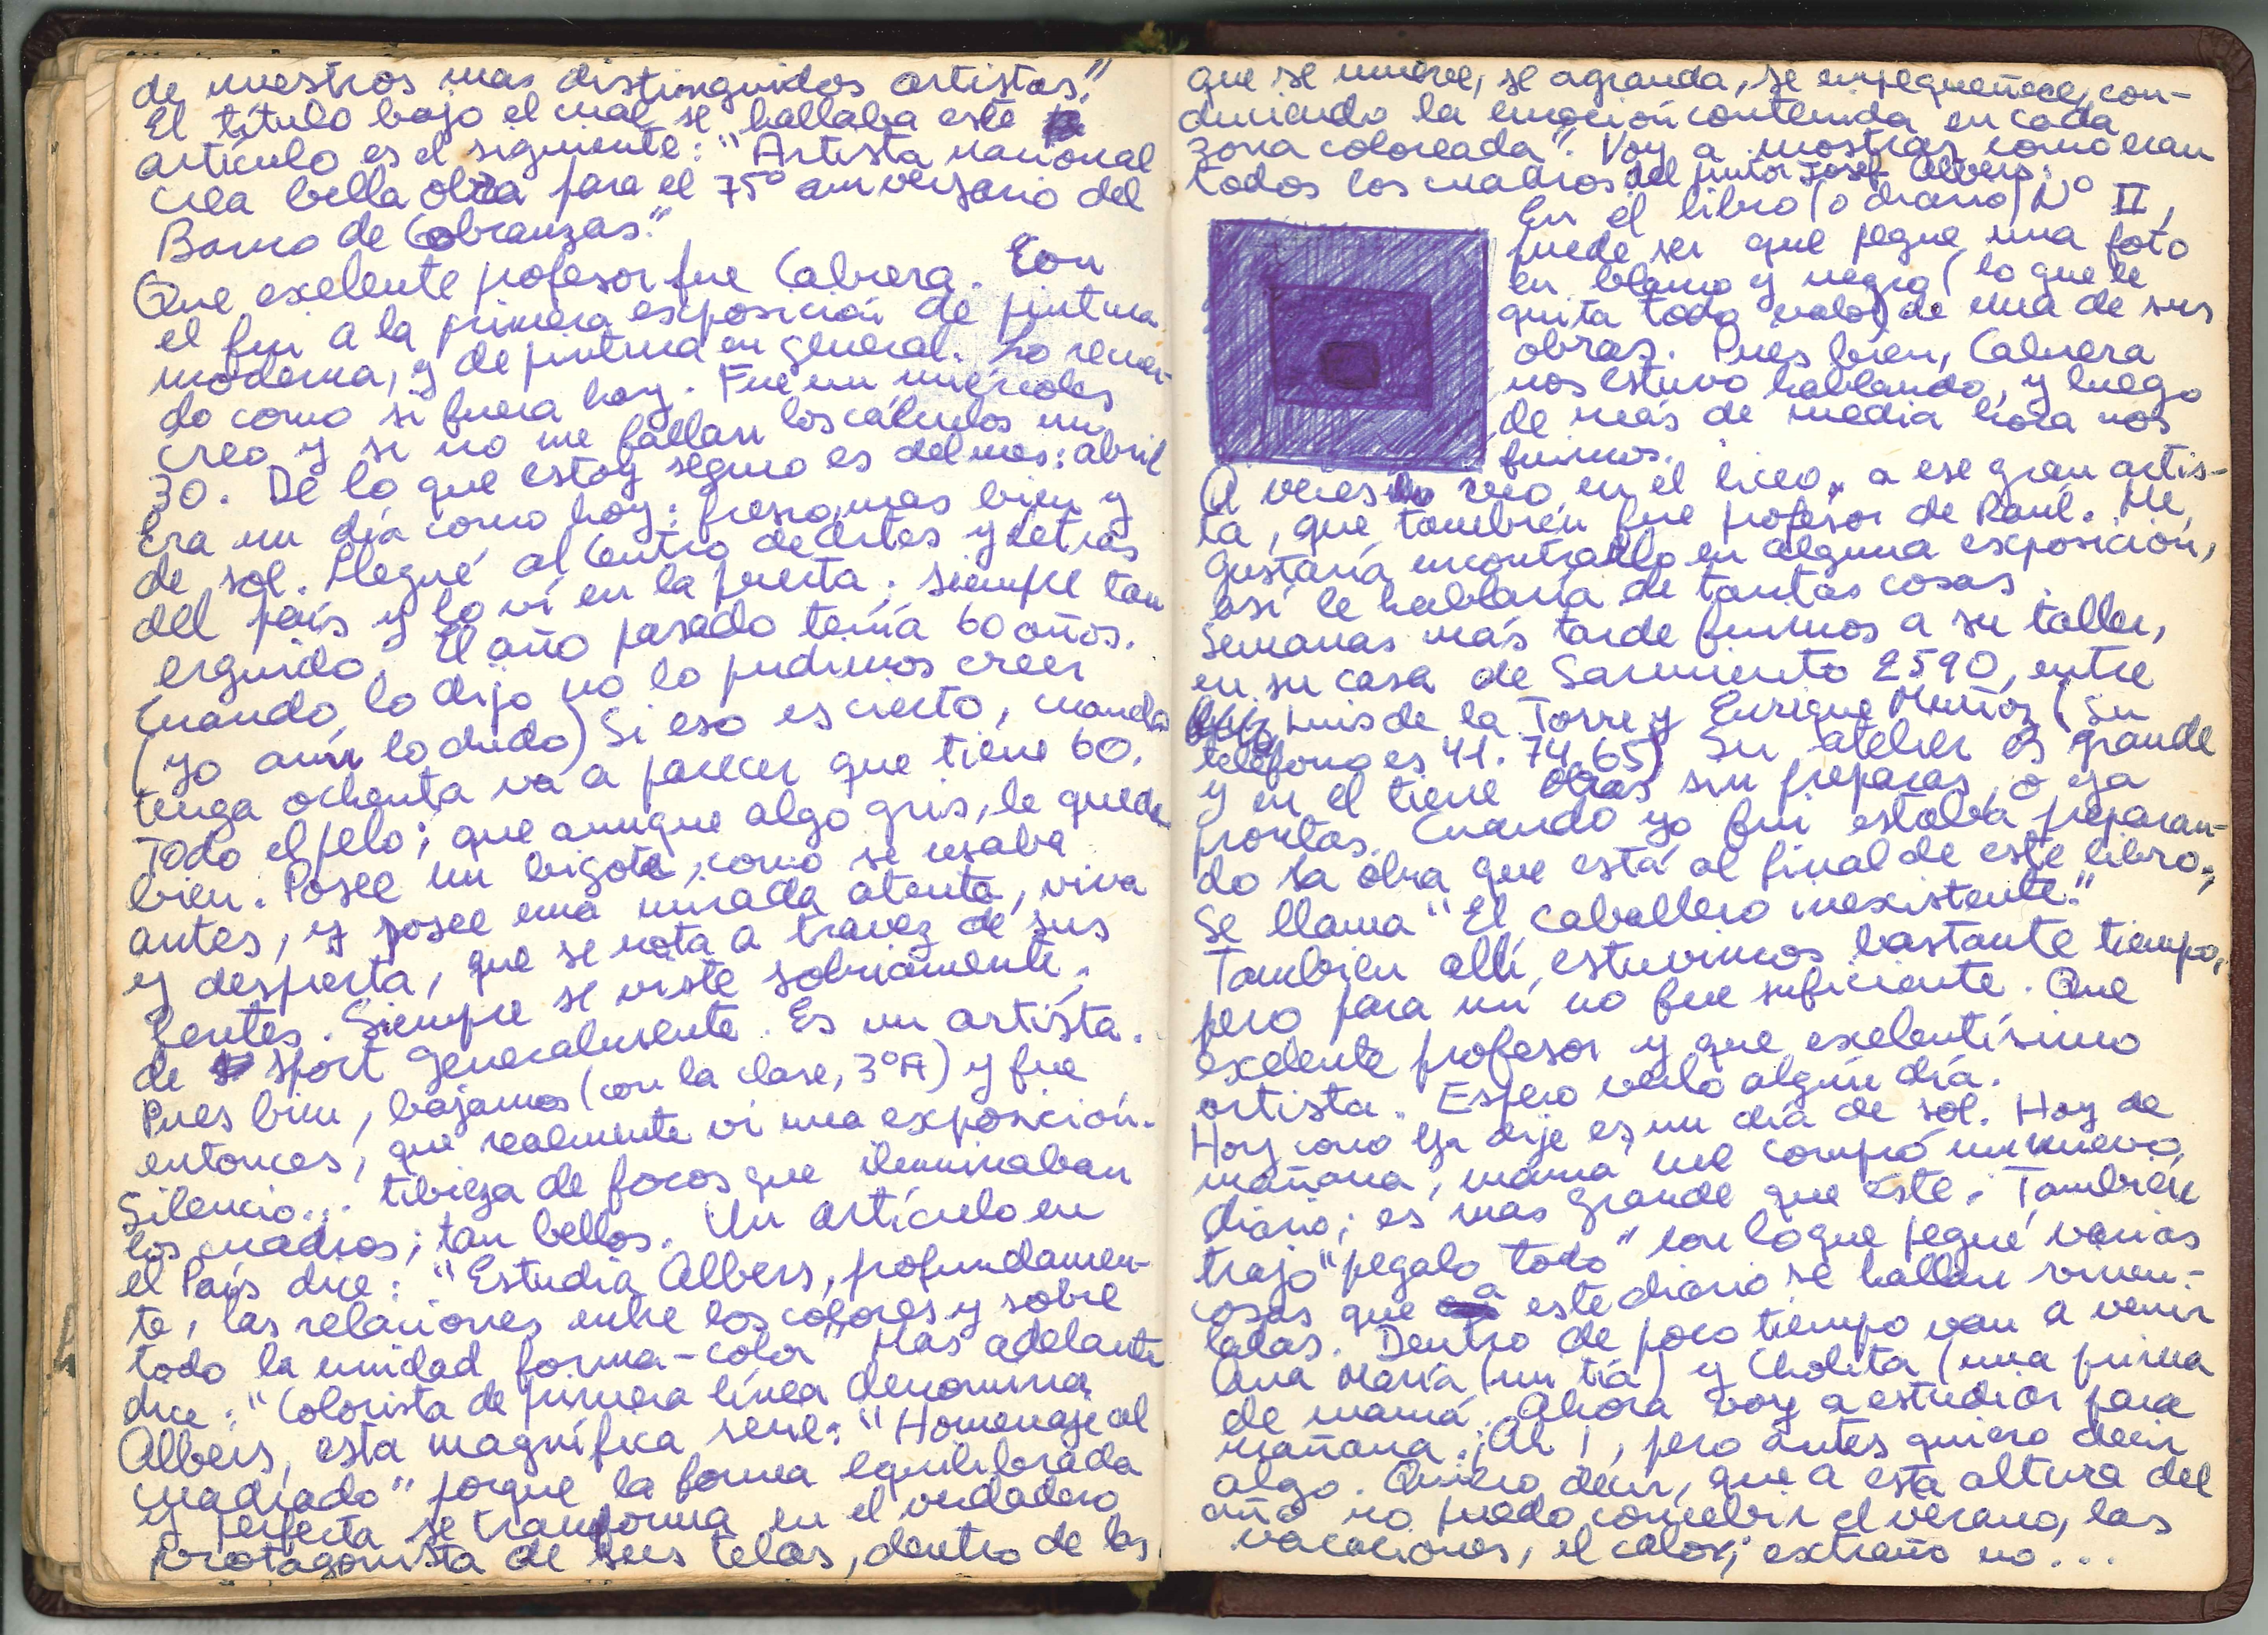 de nuestros mas distinguidos artistas."
El título bajo el cual se hallaba este
artículo es el siguiente: "Artista nacional
crea bella obra para el 75º aniversario del
Banco de Cobranzas."
Que exelente profesor fue Cabrera. Con
el fui a la primera exposición de pintura
moderna, y de pintura en general. Lo recuer-
do como si fuera hoy. Fue un miércoles
creo y si no me fallan los cálculos un
30. De lo que estoy seguro es del mes: abril
Era un día como hoy: fresco, mas bien y
de sol. Llegué al Centro de Artes y Letras
del país y lo ví en la puerta; siempre tan
erguido. El año pasado tenía 60 años.
Cuando lo dijo no lo pudimos creer
(yo aún lo dudo) Si eso es cierto, cuando
tenga ochenta va a parecer que tiene 60.
Todo el pelo; que aunque algo gris, le queda
bien. Posee un bigote, como se usaba
antes, y posee una mirada atenta, viva
y despierta, que se nota a travez de sus
lentes. Siempre se viste sobriamente,
de sport generalmente. Es un artista.
Pues bien, bajamos (con la clase, 3ºA) y fue
entonces, que realmente ví una exposición.
Silencio... tibieza de focos que iluminaban
los cuadros; tan bellos. Un artículo en
el País dice: "Estudia Albers, profundamen-
te, las relaciones entre los colores y sobre
todo la unidad forma-color" Mas adelante
dice: "Colorista de primera línea denomina
Albers, esta magnífica serie: "Homenaje al
cuadrado" porque la forma equilibrada
y perfecta se transforma en el verdadero
protagonista de sus telas, dentro de las
que se mueve, se agranda, se empequeñece, con-
duciendo la emoción contenida en cada
zona coloreada". Voy a mostrar como eran
todos los cuadros del pintor Josef Albers:
En el libro (o diario) Nº II,
puede ser que pegue una foto
en blanco y negro (lo que le
quita todo valor) de una de sus
obras. Pues bien, Cabrera
nos estuvo hablando, y luego
de más de media hora nos
fuimos.
A veces lo veo en el liceo, a ese gran artis-
ta, que también fue profesor de Raúl. Me
gustaría encontrarlo en alguna exposición,
así le hablaría de tantas cosas.
Semanas más tarde fuimos a su taller,
en su casa de Sarmiento 2590, entre
Luis de la Torre y Enrique Muñoz (Su
teléfono es 41.74.65) Su atelier es grande
y en el tiene obras sin preparar, o ya
prontas. Cuando yo fui estaba preparan-
do la obra que está al final de este libro;
Se llama "El caballero inexistente."
Tambien allí estuvimos bastante tiempo,
pero para mí no fue suficiente. Que
exelente profesor y que exelentísimo
artista. Espero verlo algún día.
Hoy como ya dije es un día de sol. Hoy de
mañana, mamá me compró un nuevo
diario; es mas grande que éste. También
trajo "pegalo todo" con lo que pegué varias
cosas que a este diario se hallan vincu-
ladas. Dentro de poco tiempo van a venir
Ana María (mi tía) y Cholita (una prima
de mamá. Ahora voy a estudiar para
mañana. ¡Ah!, pero antes quiero decir
algo. Quiero decir, que a esta altura del
año no puedo concebir el verano, las
vacaciones, el calor; extraño no...